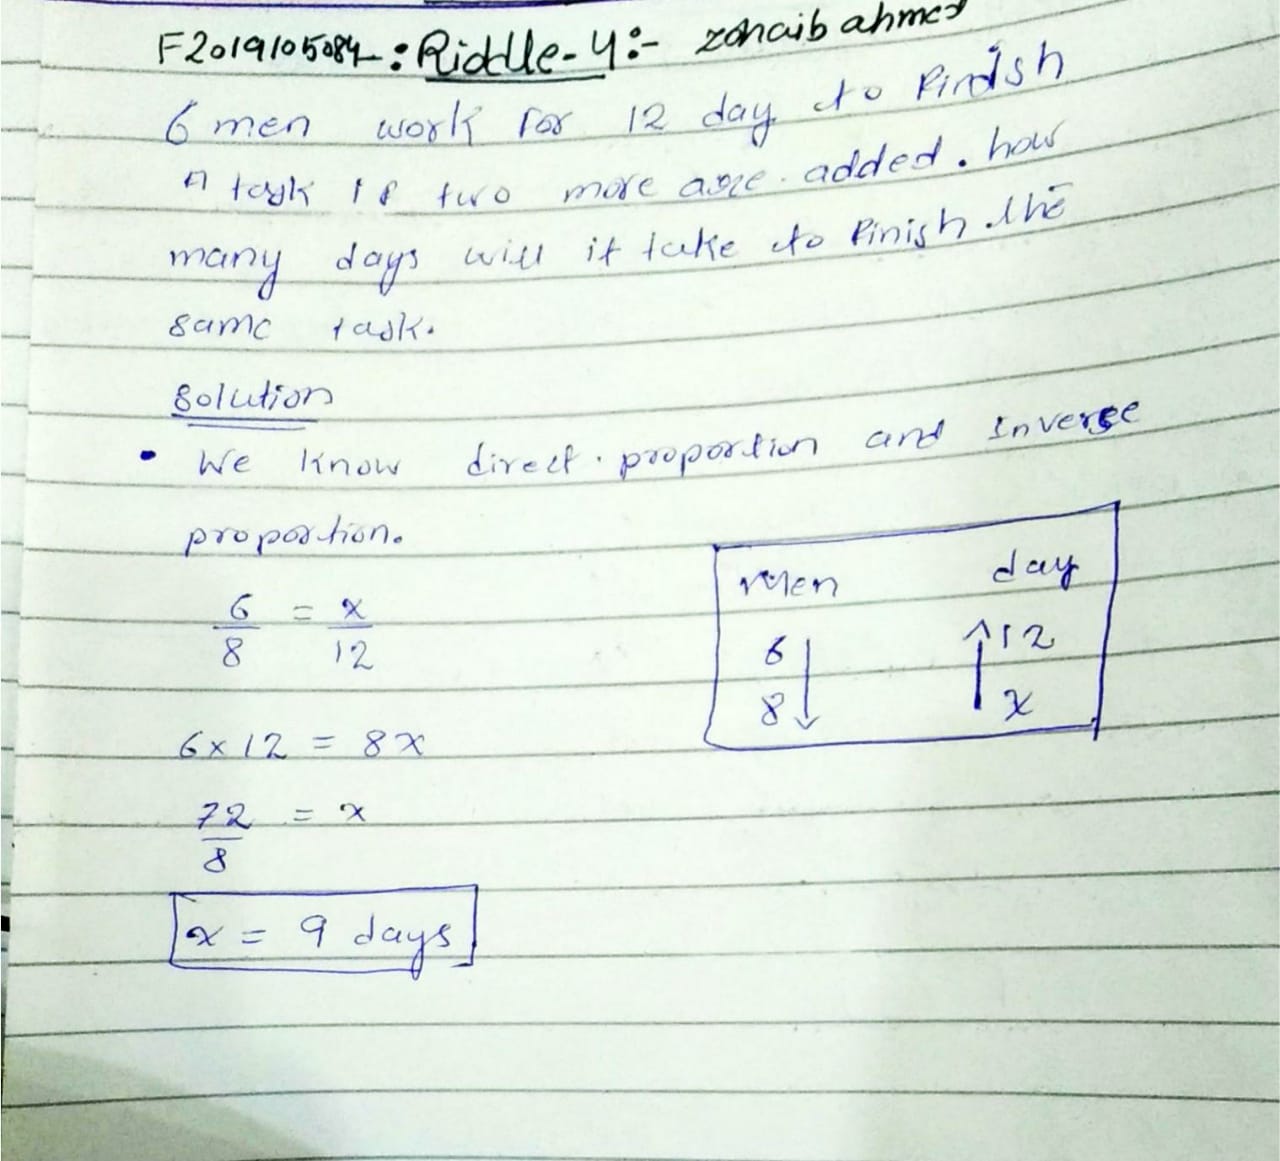 F2019105084 : Riddle-4:- zohaib ahmed
6 men work for 12 day to finish
A task if two more are added. how
many days will it take to finish the
same task.
Solution
• We know direct proportion and Inverse
proportion.
Men day
6/8 = x/12
6 12
8 x
6 x 12 = 8x
72/8 = x
x = 9 days